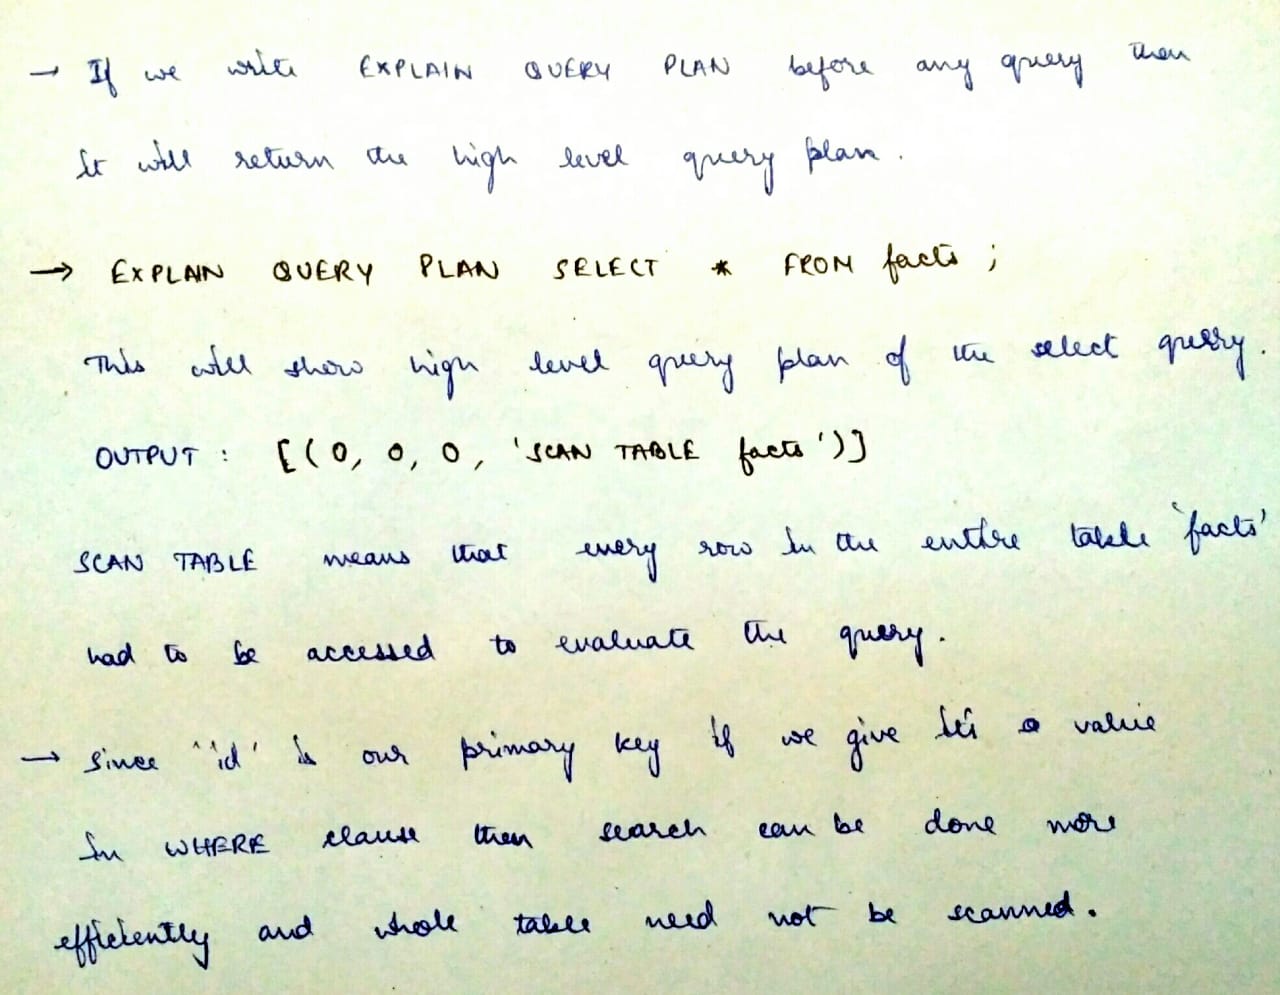 → If we write EXPLAIN QUERY PLAN before any query then
it will return the high level query plan.
→ EXPLAIN QUERY PLAN SELECT * FROM facts ;
This will show high level query plan of the select query.
OUTPUT : [(0, 0, 0, 'SCAN TABLE facts')]
SCAN TABLE means that every row in the entire table 'facts'
had to be accessed to evaluate the query.
→ Since 'id' is our primary key if we give its value
in WHERE clause then search can be done more
efficiently and whole table need not be scanned.